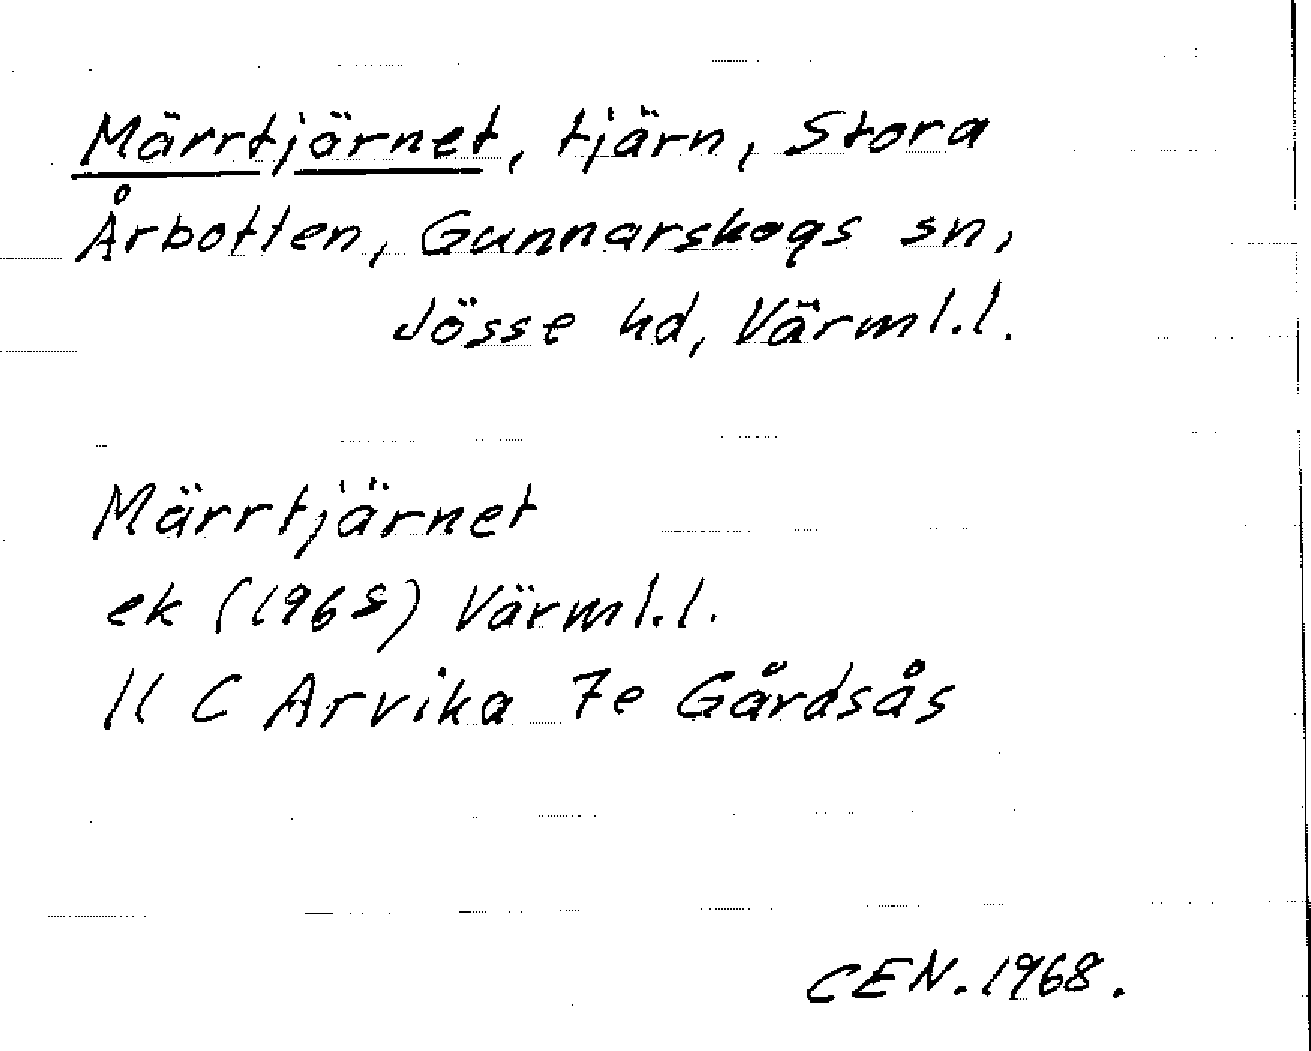 Märrtjärnet, tjärn, Stora
Årbotten, Gunnarskogs sn,
Jösse hd, Värml.l.
Märrtjärnet
ek (1965) Värml.l.
11 C Arvika 7e Gårdsås
CEN. 1968.